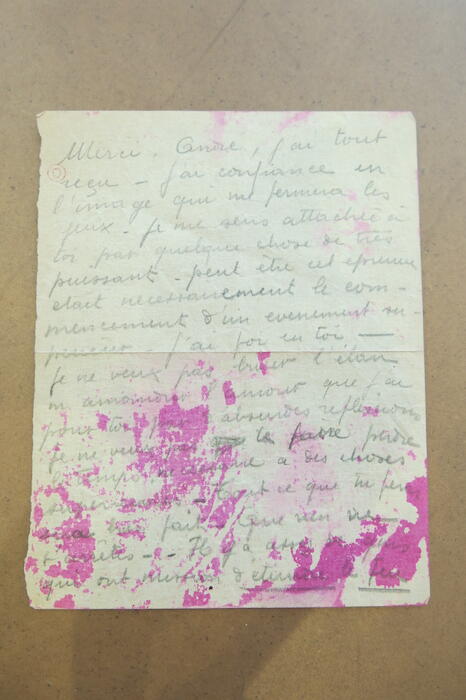 Merci, André, j'ai tout
reçu – j'ai confiance en
l'image qui me fermera les
yeux – je me sens attachée à
toi par quelque chose de très
puissant – peut être cet épreuve
était nécessairement le com-
mencement d'un evenement su-
périeur – J'ai foi en toi –
Je ne veux pas briser l'élan
l'amour que j'ai
pour toi par absurdes reflexions
Je ne veux pas te faire perdre
à des choses
– tout ce que tu feras
bien fait – Que rien ne
t'arrête – Il y a assez de gens
qui ont mission d'éteindre le feu